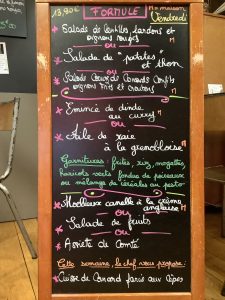 13,90€ FORMULE M = maison
Vendredi
Salade de lentilles lardons et
oignons rouges M
ou
Salade de "patates" M
et thon
ou
Salade Coeur de Canard Confits M
oignons frits et croûtons
Emincé de dinde M
au curry
ou
Aile de raie
à la grenobloise M
Garnitures: frites, riz, mogettes,
haricots verts fondue de poireaux
ou mélange de céréales au pesto
Moelleux canelle à la crème M
anglaise M
ou
Salade de fruits
ou
Assiette de Comté
Cette semaine, le chef vous propose:
Cuisse de Canard farcie aux cèpes